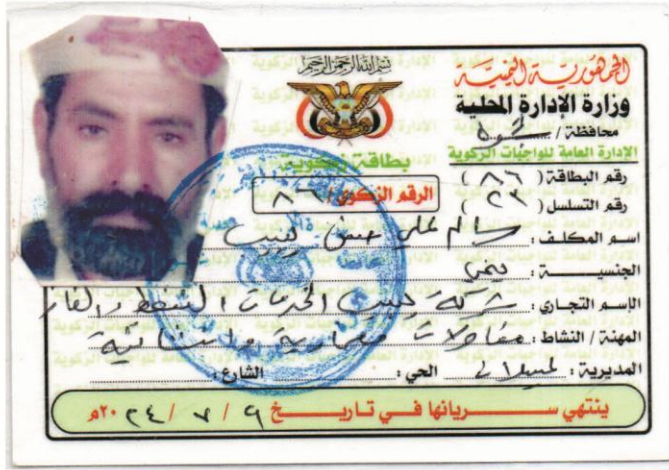 بسم الله الرحمن الرحيم
الجمهورية اليمنية
وزارة الإدارة المحلية
محافظة /
الإدارة العامة للواجبات الزكوية
بطاقة زكوية
رقم البطاقة ( ٨٦ )
الرقم الزكوي / ٨٦
رقم التسلسل ( ٢٣ )
اسم المكلف : سالم علي حسن
الجنسية : يمني
الاسم التجاري : شركة حبيب الخدمات النفط والغاز
المهنة / النشاط : مقاولات معمارية وانشائية
المديرية : الحي : الشارع :
ينتهي سريانها في تاريخ ٩ / ٧ / ٢٠٢٤م